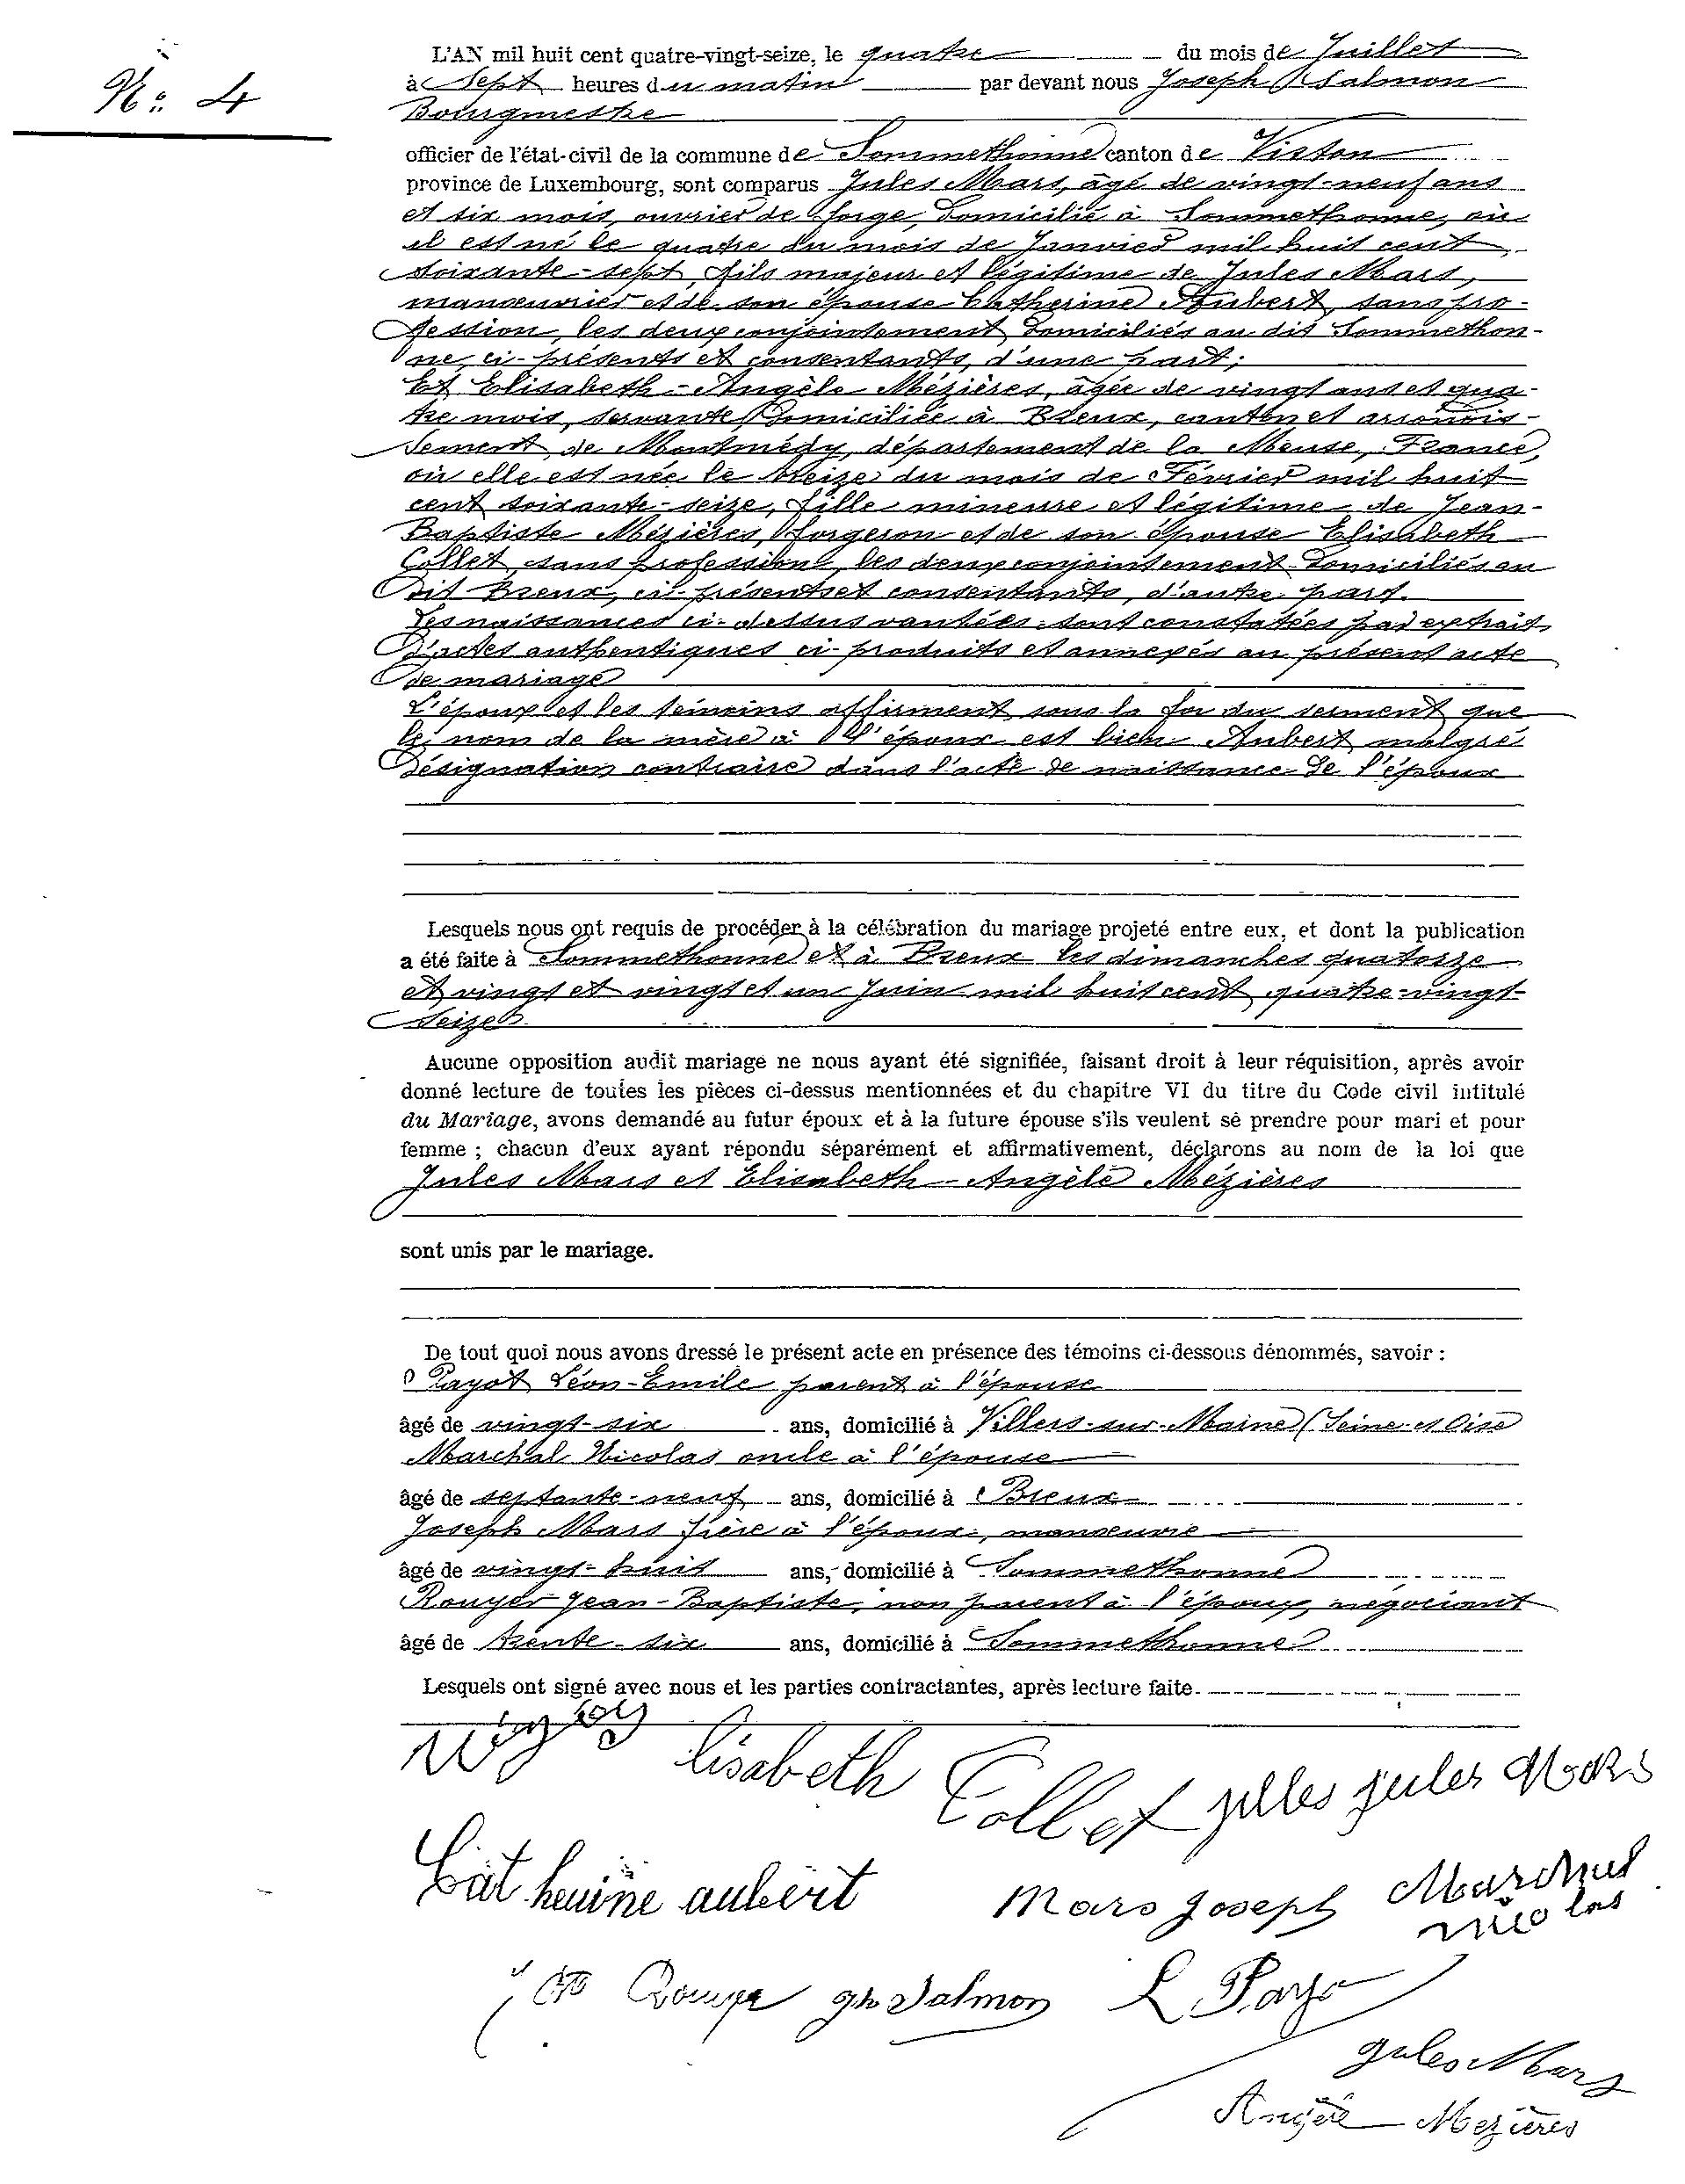 N° 4
L'AN mil huit cent quatre-vingt-seize, le quatre du mois de Juillet
à Sept heures du matin par devant nous Joseph Salmon
Bourgmestre
officier de l'état-civil de la commune de Sommethonne canton de Virton
province de Luxembourg, sont comparus Jules Mars, âgé de vingt-neuf ans
et six mois, ouvrier de forge, domicilié à Sommethonne, où
il est né le quatre du mois de Janvier mil huit cent
soixante-sept, fils majeur et légitime de Jules Mars,
manœuvrier et de son épouse Catherine Aubert, sans pro-
fession, les deux conjointement domiciliés au dit Sommethon-
ne, ci-présents et consentants, d'une part;
Et Elisabeth-Angèle Mézières, âgée de vingt ans et qua-
tre mois, servante, domiciliée à Breux, canton et arrondis-
sement de Montmédy, département de la Meuse, France,
où elle est née le treize du mois de Février mil huit
cent soixante-seize, fille mineure et légitime de Jean-
Baptiste Mézières, forgeron et de son épouse Elisabeth
Collet, sans profession, les deux conjointement domiciliés au
dit Breux, ci-présents et consentants, d'autre part.
Les naissances ci-dessus vantées sont constatées par extraits
d'actes authentiques ci-produits et annexés au présent acte
de mariage
L'époux et les témoins affirment sous la foi du serment que
le nom de la mère à l'époux est bien Aubert malgré
désignation contraire dans l'acte de naissance de l'époux
Lesquels nous ont requis de procéder à la célébration du mariage projeté entre eux, et dont la publication
a été faite à Sommethonne et à Breux les dimanches quatorze
et vingt et vingt et un Juin mil huit cent quatre-vingt-
seize
Aucune opposition audit mariage ne nous ayant été signifiée, faisant droit à leur réquisition, après avoir
donné lecture de toutes les pièces ci-dessus mentionnées et du chapitre VI du titre du Code civil intitulé
du Mariage, avons demandé au futur époux et à la future épouse s'ils veulent se prendre pour mari et pour
femme ; chacun d'eux ayant répondu séparément et affirmativement, déclarons au nom de la loi que
Jules Mars et Elisabeth-Angèle Mézières
sont unis par le mariage.
De tout quoi nous avons dressé le présent acte en présence des témoins ci-dessous dénommés, savoir :
Payot Léon-Emile parent à l'épouse
âgé de vingt-six ans, domicilié à Villers-sur-Maine (Seine-et Oise
Marchal Nicolas oncle à l'épouse
âgé de septante-neuf ans, domicilié à Breux
Joseph Mars frère à l'époux, manœuvre
âgé de vingt-huit ans, domicilié à Sommethonne
Rouyer Jean-Baptiste, non parent à l'époux, négociant
âgé de trente-six ans, domicilié à Sommethonne
Lesquels ont signé avec nous et les parties contractantes, après lecture faite.
lisabeth Collet jules Mars
Catheuine aubert Mars Joseph Marchal
nicolas
Rouye Jh Salmon L Payo
Jules Mars
Angèle Mezières